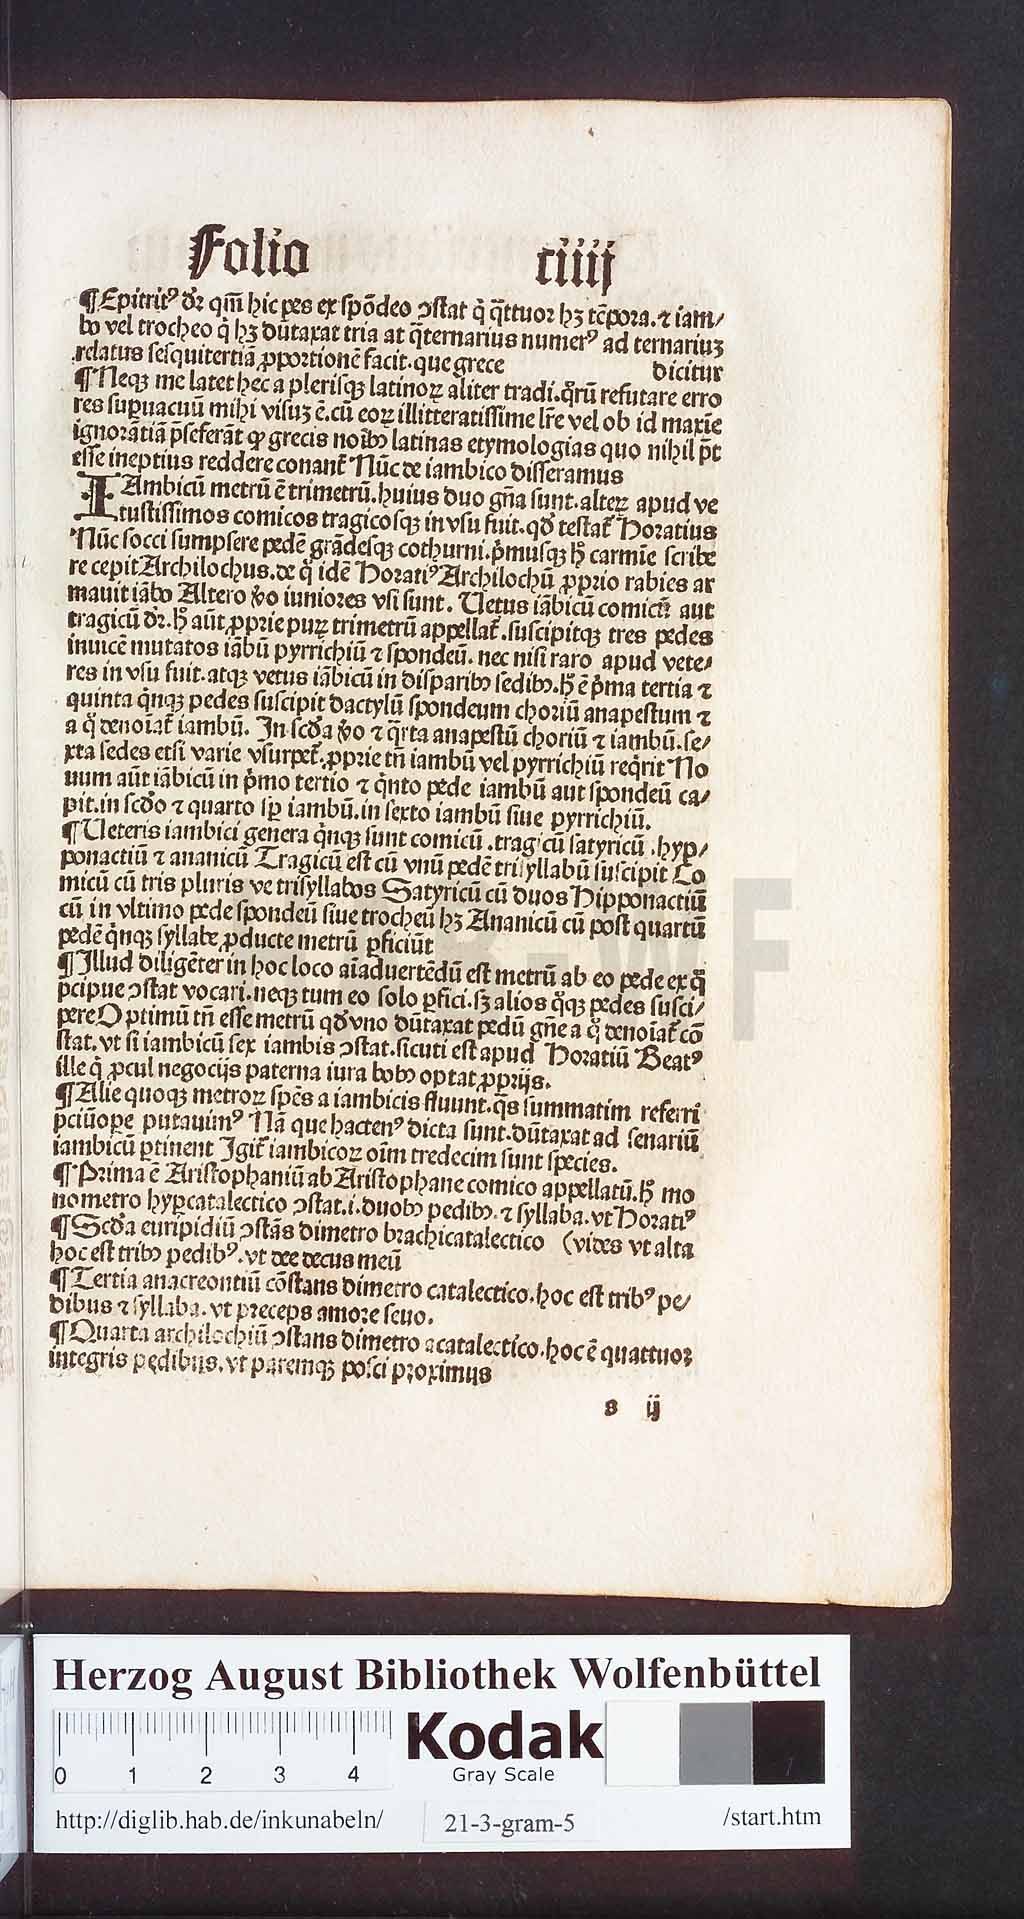 Folio ciiij
¶Epitritꝰ dr̄ qm̄ hic pes ex spōdeo ↄstat q̇ q̄ttuor hꝫ tēpora. ⁊ iam/
bo vel trocheo q̇ hꝫ dūtaxat tria at q̄ternarius numerꝰ ad ternariuꝫ
relatus sesquitertiā ꝓportionē facit. que grece dicitur
¶Neqꝫ me latet hec a plerisqꝫ latinoꝝ aliter tradi. qͦrū refutare erro
res supuacuū mihi visuꝫ ē. cū eoꝝ illitteratissime lr̄e vel ob id maxīe
ignorātiā p̄seferāt ꝙ grecis noībꝰ latinas etymologias quo nihil pōt
esse ineptius reddere conant᷑ Nūc de iambico disseramus
IAmbicū metrū ē trimetrū. huius duo gn̄a sunt. alteꝝ apud ve
tustissimos comicos tragicosqꝫ in vsu fuit. qd̓ testat᷑ Horatius
Nūc socci sumpsere pedē grādesqꝫ cothurni. p̓musqꝫ hͦ carmīe scribe
re cepit Archilochus. de qͦ idē Horatiꝰ Archilochū ꝓprio rabies ar
mauit iābo Altero v̓o iuniores vsi sunt. Uetus iābicū comicū aut
tragicū dr̄. hͦ aūt ꝓprie puꝝ trimetrū appellat᷑. suscipitqꝫ tres pedes
inuicē mutatos iābū pyrrichiū ⁊ spondeū. nec nisi raro apud vete/
res in vsu fuit. atqꝫ vetus iābicū in disparibꝰ sedibꝰ. hͦ ē p̓ma tertia ⁊
quinta q̓nqꝫ pedes suscipit dactylū spondeum choriū anapestum ⁊
a qͦ denoīat᷑ iambū. In scd̓a v̓o ⁊ q̄rta anapestū choriū ⁊ iambū. se/
xta sedes etsi varie vsurpet᷑. ꝓprie tn̄ iambū vel pyrrichiū req̓rit No
uum aūt iābicū in p̓mo tertio ⁊ q̓nto pede iambū aut spondeū ca/
pit. in scd̓o ⁊ quarto sp̄ iambū. in sexto iambū siue pyrrichiū.
¶Ueteris iambici genera q̓nqꝫ sunt comicū .tragicū satyricū .hyp/
ponactiū ⁊ ananicū Tragicū est cū vnū pedē trisyllabū suscipit Co
micū cū tris pluris ve trisyllabos Satyricū cū duos Hipponactiū
cū in vltimo pede spondeū siue trocheū hꝫ Ananicū cū post quartū
pedē q̓nqꝫ syllabe ꝓducte metrū ꝑficiūt
¶Illud diligēter in hoc loco aīaduertēdū est metrū ab eo pede ex qͦ
p̄cipue ↄstat vocari. neqꝫ tum eo solo ꝑfici. sꝫ alios qͦqꝫ pedes susci/
pere Optimū tn̄ esse metrū qd̓ vno dūtaxat pedū gn̄e a qͦ denoīat᷑ cō
stat. vt si iambicū sex iambis ↄstat. sicuti est apud Horatiū Beatꝰ
ille q̇ ꝓcul negocijs paterna iura bobꝰ optat ꝓprijs.
¶Alie quoqꝫ metroꝝ sp̄es a iambicis fluunt. q̄s summatim referri
p̄ciūope putauimꝰ Nā que hactenꝰ dicta sunt. dūtaxat ad senariū
iambicū ꝑtinent Igit᷑ iambicoꝝ oīm tredecim sunt species.
¶Prima ē Aristophaniū ab Aristophane comico appellatū. hͦ mo
nometro hypcatalectico ↄstat. i. duobꝰ pedibꝰ. ⁊ syllaba. vt Horatiꝰ
¶Scd̓a euripidiū ↄstās dimetro brachicatalectico (vides vt alta
hoc est tribꝰ pedibꝰ. vt dee decus meū
¶Tertia anacreontiū cōstans dimetro catalectico. hoc est tribꝰ pe/
dibus ⁊ syllaba. vt preceps amore seuo.
¶Quarta archilochiū ↄstans dimetro acatalectico. hoc ē quattuor
integris pedibus. vt paremqꝫ posci proximus
s ij
HAB-WF
Herzog August Bibliothek Wolfenbüttel
0 1 2 3 4
Kodak
Gray Scale
http://diglib.hab.de/inkunabeln/ 21-3-gram-5 /start.htm